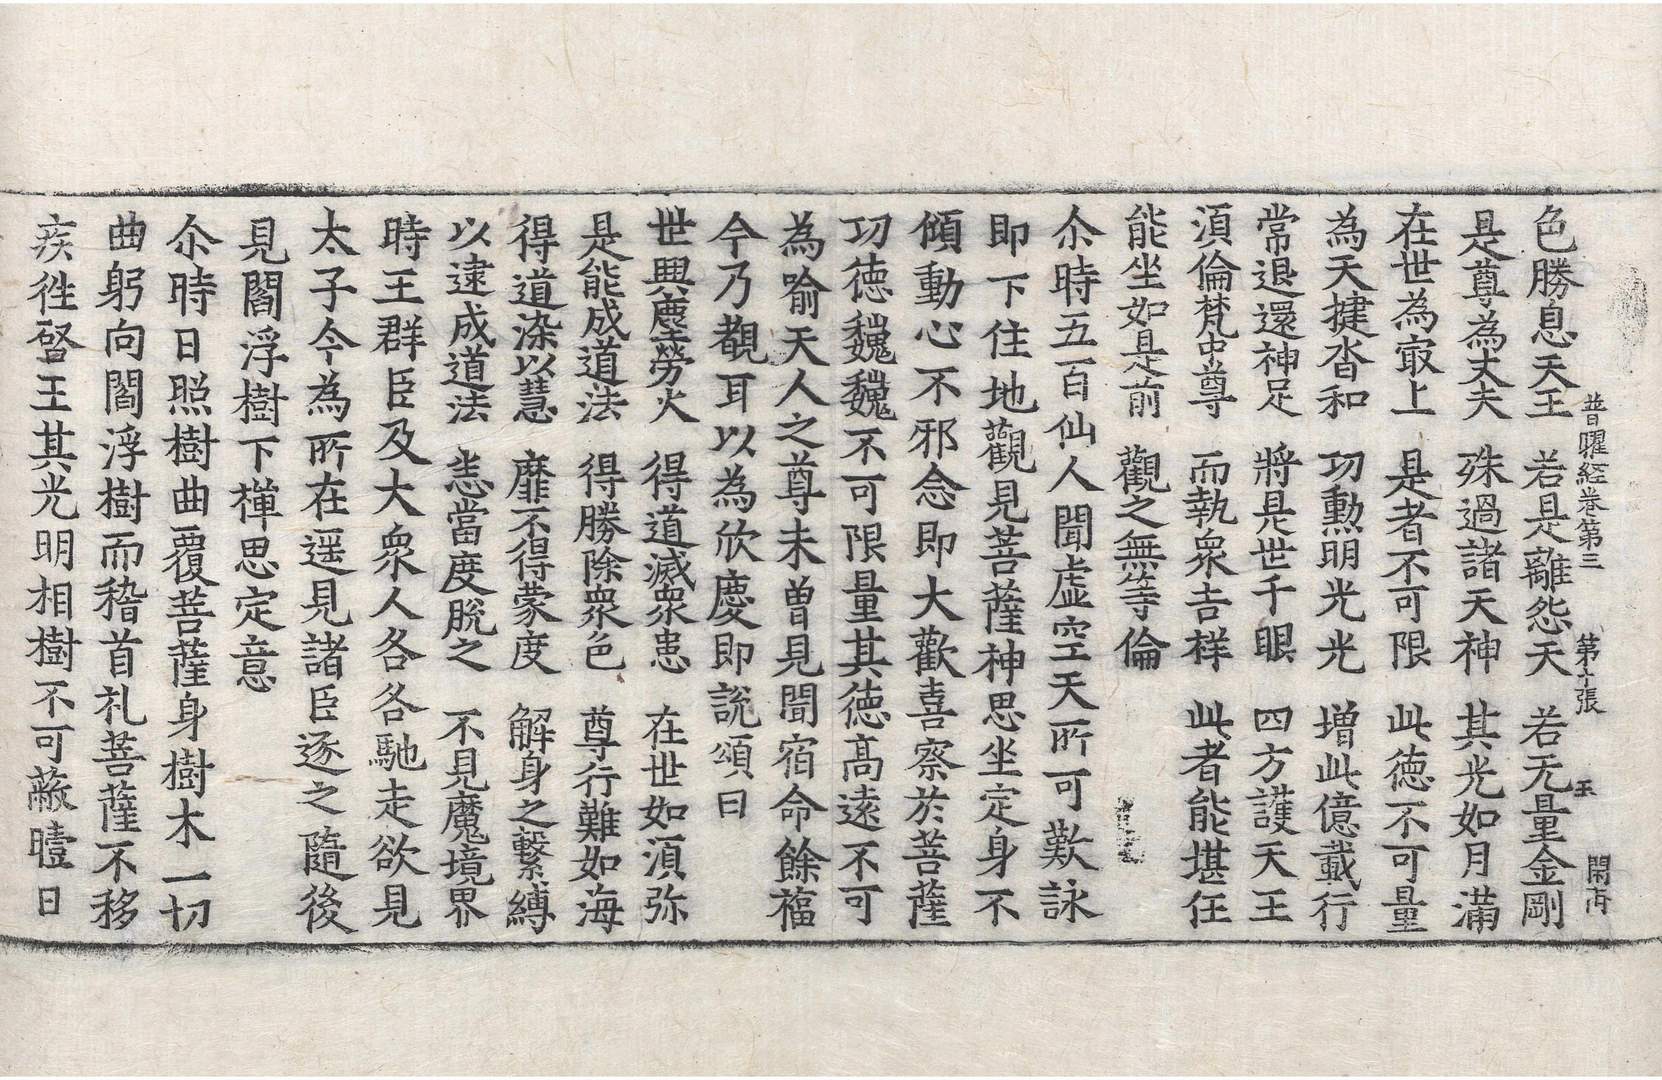 普曜経卷第三 第十張 玉 開芮
色勝息天王 若是離怨天 若无量金剛
是尊為丈夫 殊過諸天神 其光如月滿
在世為㝡上 是者不可限 此徳不可量
為天揵沓和 功勲明光光 增此億載行
常退還神足 將是世千眼 四方護天王
湏倫梵中尊 而執衆吉祥 此者能堪任
能坐如是前 觀之無等倫
尒時五百仙人聞虛空天所可歎詠
即下住地觀見菩薩神思坐定身不
傾動心不邪念即大歡喜察於菩薩
功徳巍巍不可限量其徳髙遠不可
為喻天人之尊未曽見聞宿命餘福
今乃覩耳以為欣慶即說頌曰
世興塵勞火 得道滅衆患 在世如湏弥
是能成道法 得勝除衆色 尊行難如海
得道染以慧 靡不得蒙度 解身之繫縛
以逮成道法 恙當度脫之 不見魔境界
時王群臣及大衆人各各馳走欲見
太子今為所在遥見諸臣逐之隨後
見閻浮樹下樿思定意
尒時日照樹曲覆菩薩身樹木一切
曲躬向閻浮樹而稽首礼菩薩不移
疾徃啓王其光明相樹不可蔽曀日